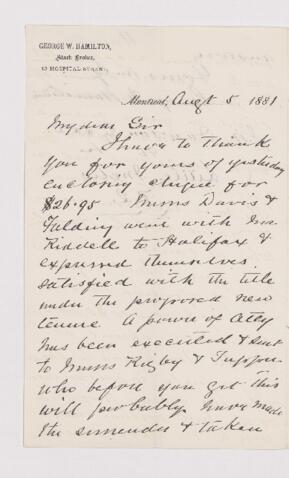 GEORGE W. HAMILTON,
Stock Broker,
13 HOSPITAL STREET.
Montreal, Augt 5 1881
My dear Sir
I have to thank
you for yours of yesterday
enclosing cheque for
$26.95 Messrs Davis &
Falding went with Mr
Riddell to Halifax &
expressed themselves
satisfied with the title
under the proposed new
tenure. A power of Atty
has been executed & sent
to Messrs Rigby & Tupper
who before you get this
will probably have made
the surrender & taken